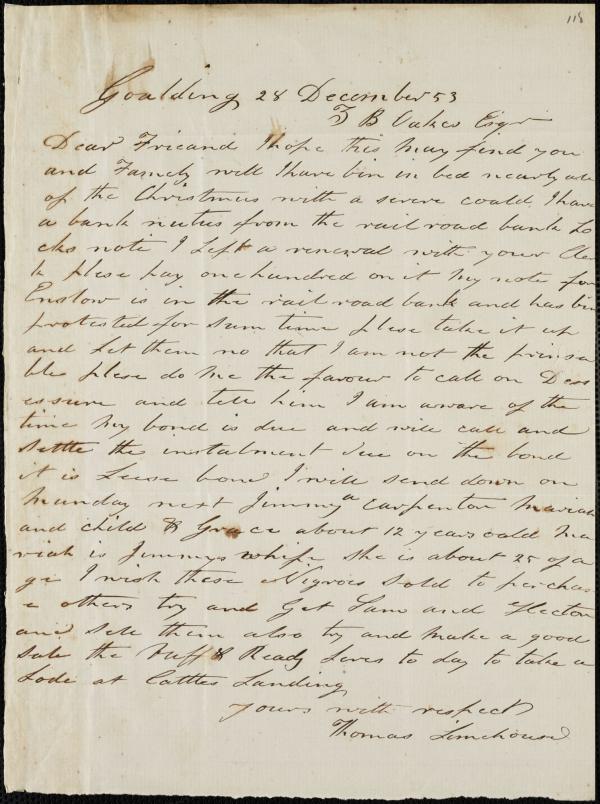 118
Goulding 28 December 53
Z B Oakes Esqr
Dear Frieand I hope this May find you
and Famely well I have bin in bed nearly all
of the Christmas with a severe could I have
a bank nutus from the rail road bank Lo
cks note I Left a renewal with your Cler
k plese pay onehundred on it My note for
Enslow is in the rail road bank and has bin
protested for sum time plese take it up
and Let them no that I am not the prinsa
ble plese do Me the favour to call on Dess
essure and tell him I am aware of the
time My bond is due and will call and
Settle the instalment due on the bond
it is Leese bond I will send down on
Munday next Jimmy a Carpenter Mariah
and child & Grace about 12 years oald Ma
riah is Jimmys whife she is about 25 of a
ge I wish these Nigroes Sold to perchas
e others try and Get Sam and Hector
and sell them also try and Make a good
Sale the Ruff & Ready Leves to day to take a
Lode at Cattles Landing
yours with respect
Thomas Limehouse